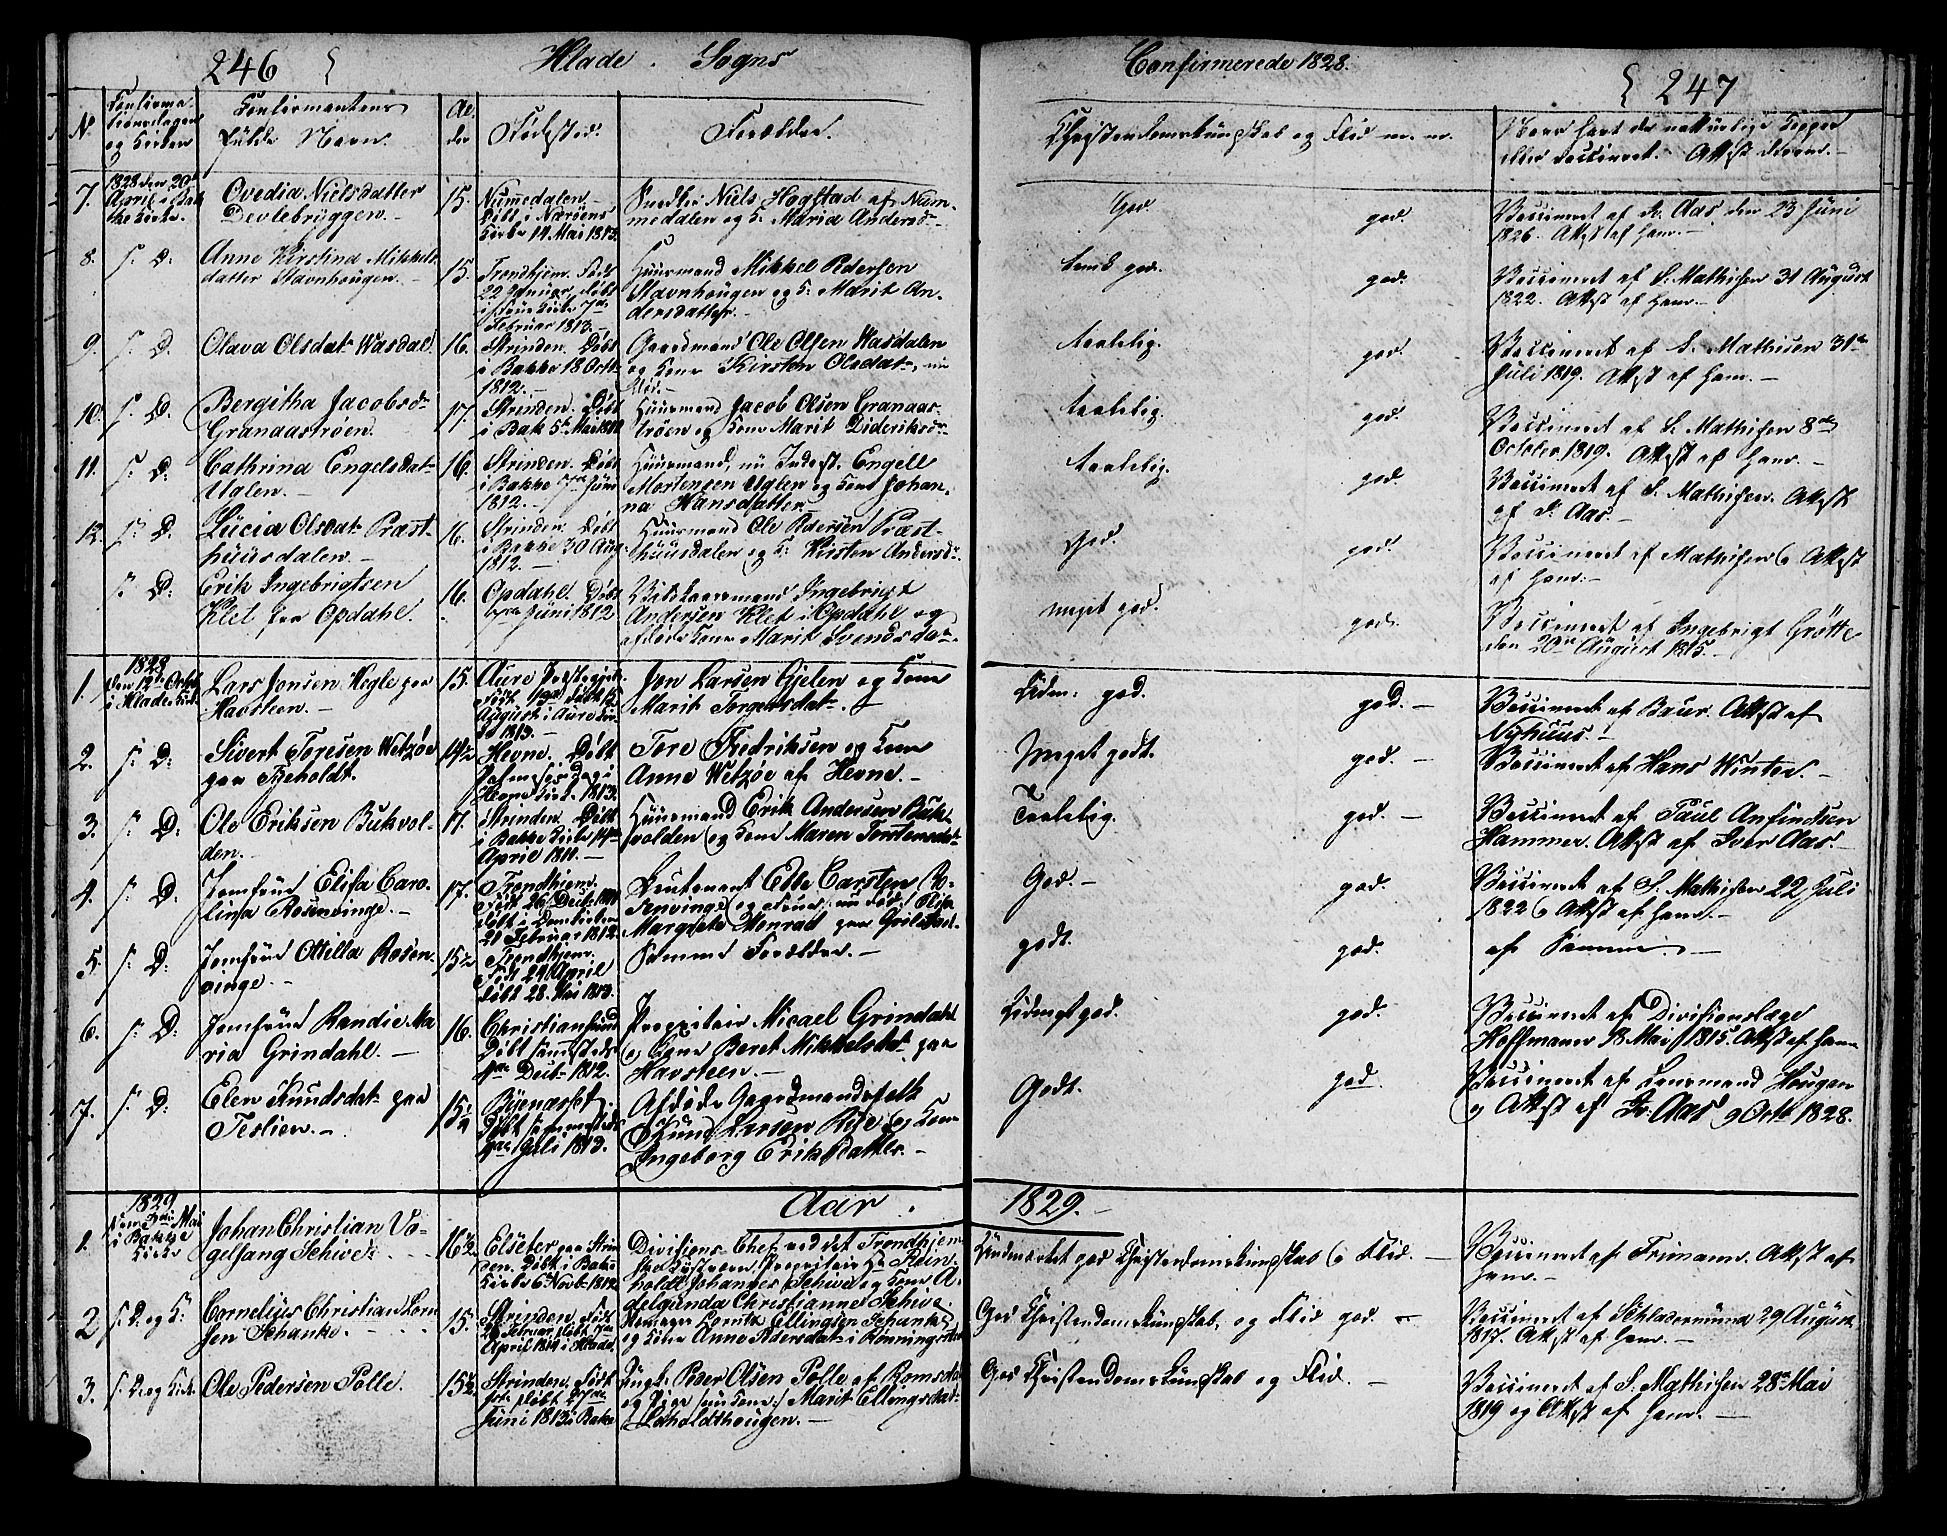 246 Hlade Sogns
Confirmerede 1828. 247
No Confirma-
tionsdagen
og Kirken
Confirmantens
fulde Navn.
Al-
der
Födested.
Forældre.
Christendomskundskab og Flid m. m.
Naar havt de naturlige Kopper
eller vaccineret. Attest derom.
7. 1828 den 20de
April i Bak-
ke Kirke.
Ovedia Nielsdatter
Devlebryggen.
15. Numedalen.
Döbt i Næröens
Kirke 14 Mai 1813.
Niels Hogstad af Num-
medalen og K. Maria Andersd.
God. god.
Vaccineret af Jv. Aas den 23 Juni
1826. Attest af ham.
8. s. D. Anne Kirstina Mikkels-
datter Stavnhougen.
15. Trondhjem. Födt
22 Januar, döbt
7de
Februar 1813.
Huusmand Mikkel Pedersen
Stavnhougen og K. Marit An-
dersdatter.
god. god.
Vaccineret af S. Mathisen 31 August
1822. Attest af ham.
9. s. D. Olava Olsdat. Wasdal.
16. Strinden. Döbt
i Bakke 18 Octb.
1812.
Gaardmand Ole Olsen Wasdalen
og Kone Kirsten Olsdat.
taalelig. god.
Vaccineret af S. Mathisen 31te
Juli 1819. Attest af ham.
10. s. D. Bergitha Jacobsd.
Granaastrøen.
17. Strinden. Döbt
i Bak. 5te Mai
Huusmand Jacob Olsen Granaas-
trøen og Kone Marit Dideriksd.
taalelig. god.
Vaccineret af S. Mathisen 8de
October 1819. Attest af ham.
11. s. D. Cathrina Engelsdat.
Uglen.
16. Strinden. Döbt
i Bakke 7de Juni
1812.
Huusmand, nu Inderst. Engell
Mortensen Uglen og Kone Johan-
na Hansdatter.
taalelig. god.
Vaccineret af S. Mathisen. Attest
af Jv. Aas.
12. s. D. Lucia Olsdat. Præst-
huusdalen.
16. Strinden. Döbt
i Bakke 30 Aug.
1812.
Huusmand Ole Pedersen Præst-
huusdalen og K. Kirsten Andersd.
God. god.
Vaccineret af Mathisen og Attest
af ham.
s. D. Erik Ingebrigtsen
Klet fra Opdahl.
16. Opdahl. Döbt
Juni 1812
Ingebrigt
Andersen Klet i Opdahl og
afdöde Kone Marit Svendsda.
meget god. god.
Vaccineret af Ingebrigt Grötte
den 20de August 1815.
1. 1828
den 12te Octob.
i Hlade Kirke
Lars Jonsen Higle paa
Havsteen.
15. Aure Præstegjeld.
döbt 15
August i Aure Kir-
ke 1813.
Jon Larsen Gjelen og Kone
Marit Torgersdat.
Udm. god. god.
Vaccineret af Baur. Attest af
Nyhuus.
2. s. D: Sivert Toresen Wetzöe
paa Beholdt.
14½ Hevne. Döbt
i
Hevne Kirke 1813.
Tore Fredriksen og Kone
Anne Wetzöe af Hevne.
Meget godt. god.
Vaccineret af Hans Winter.
3. s. D: Ole Eriksen Bukvol-
den.
17. Strinden. Döbt
i Bakke Kirke 14de
April 1811.
Huusmand Erik Andersen Buk-
volden og Kone Maren Torstensdat.
Taalelig. god.
Vaccineret af Paul Anfindsen
Hammer. Attest af Iver Aas.
4. s. D: Jomfrue Elisa Caro-
lina Rosenvinge.
17. Trondhjem.
Födt 26 Decb. 1811
döbt i Domkirken
21 Februar 1812.
Leutenant Ede Carsten Ro-
senvinge og Frue, nu död, Elisa
Margrete Monrad paa Grilstad.
God. god.
Vaccineret af S. Mathisen 22 Juli
1822 og Attest af ham.
5. s. D: Jomfrue Otilla Rosen-
vinge.
15½ Trondhjem.
Födt 29 April
döbt 28. Mai 1813.
Samme Forældre.
godt. god.
af Samme.
6. s. D: Jomfrue Randie Ma-
ria Grindahl.
16. Christiansund
Döbt sammesteds
Decb. 1812.
Proprietair Micael Grindahl
og Kone Beret Mikkelsdat. paa
Havsteen.
Udmegt god. god.
Vaccineret af Divisionslæge
Hoffmann 18 Mai 1815. Attest af ham
7. s. D: Elen Knudsdat. paa
Teslien.
15¼ Byenæsset.
Döbt sammesteds
Juli 1813.
Afdöde Gaardmandsfolk
Knud Larsen Rise og Kone
Ingeborg Eriksdatter.
Godt. god.
Vaccineret af Lensmand Hougen
og Attest af Iv. Aas 9 Octb. 1828.
Aar 1829.
1. 1829
Mai
i Bakke
Kirke
Johan Christian Vo-
gelsang Schive.
16½ Elseter paa Strin-
den. Döbt i Bakke
Kirke 6te Novb. 1812.
Divisions-Chef ved det Trondhjem-
ske Kystværn, Proprietair Hr Rein-
holdt Johannes Schive og Kone A-
delgunda Christianne Schive.
Udmærket god Christendomskundskab og Flid.
Vaccineret af Frimann. Attest af
ham.
2 s. D. og K: Cornelius Christian Lorn-
sen Schanke.
15. Strinden. Födt
Februar, döbt
April 1814 i Hlade.
Lorntz Ellingsen Schanke
og Kone Anne Pedersdat. i Rönningen
God Christendomskundskab, og Flid god.
Vaccineret af Schladermünd 29 August
1817. Attest af ham.
3. s. D. og Kirk. Ole Pedersen Polle.
15½ Strinden. Födt
döbt 27de
Juni 1813 i Bakke
Ungk. Peder Olsen Polle af Romsdal
og Pige Marit Ellingsdat.
Ladholdthougen.
God Christendomskundskab og Flid.
Vaccineret af S. Mathisen 28de Mai
1819 og Attest af ham.